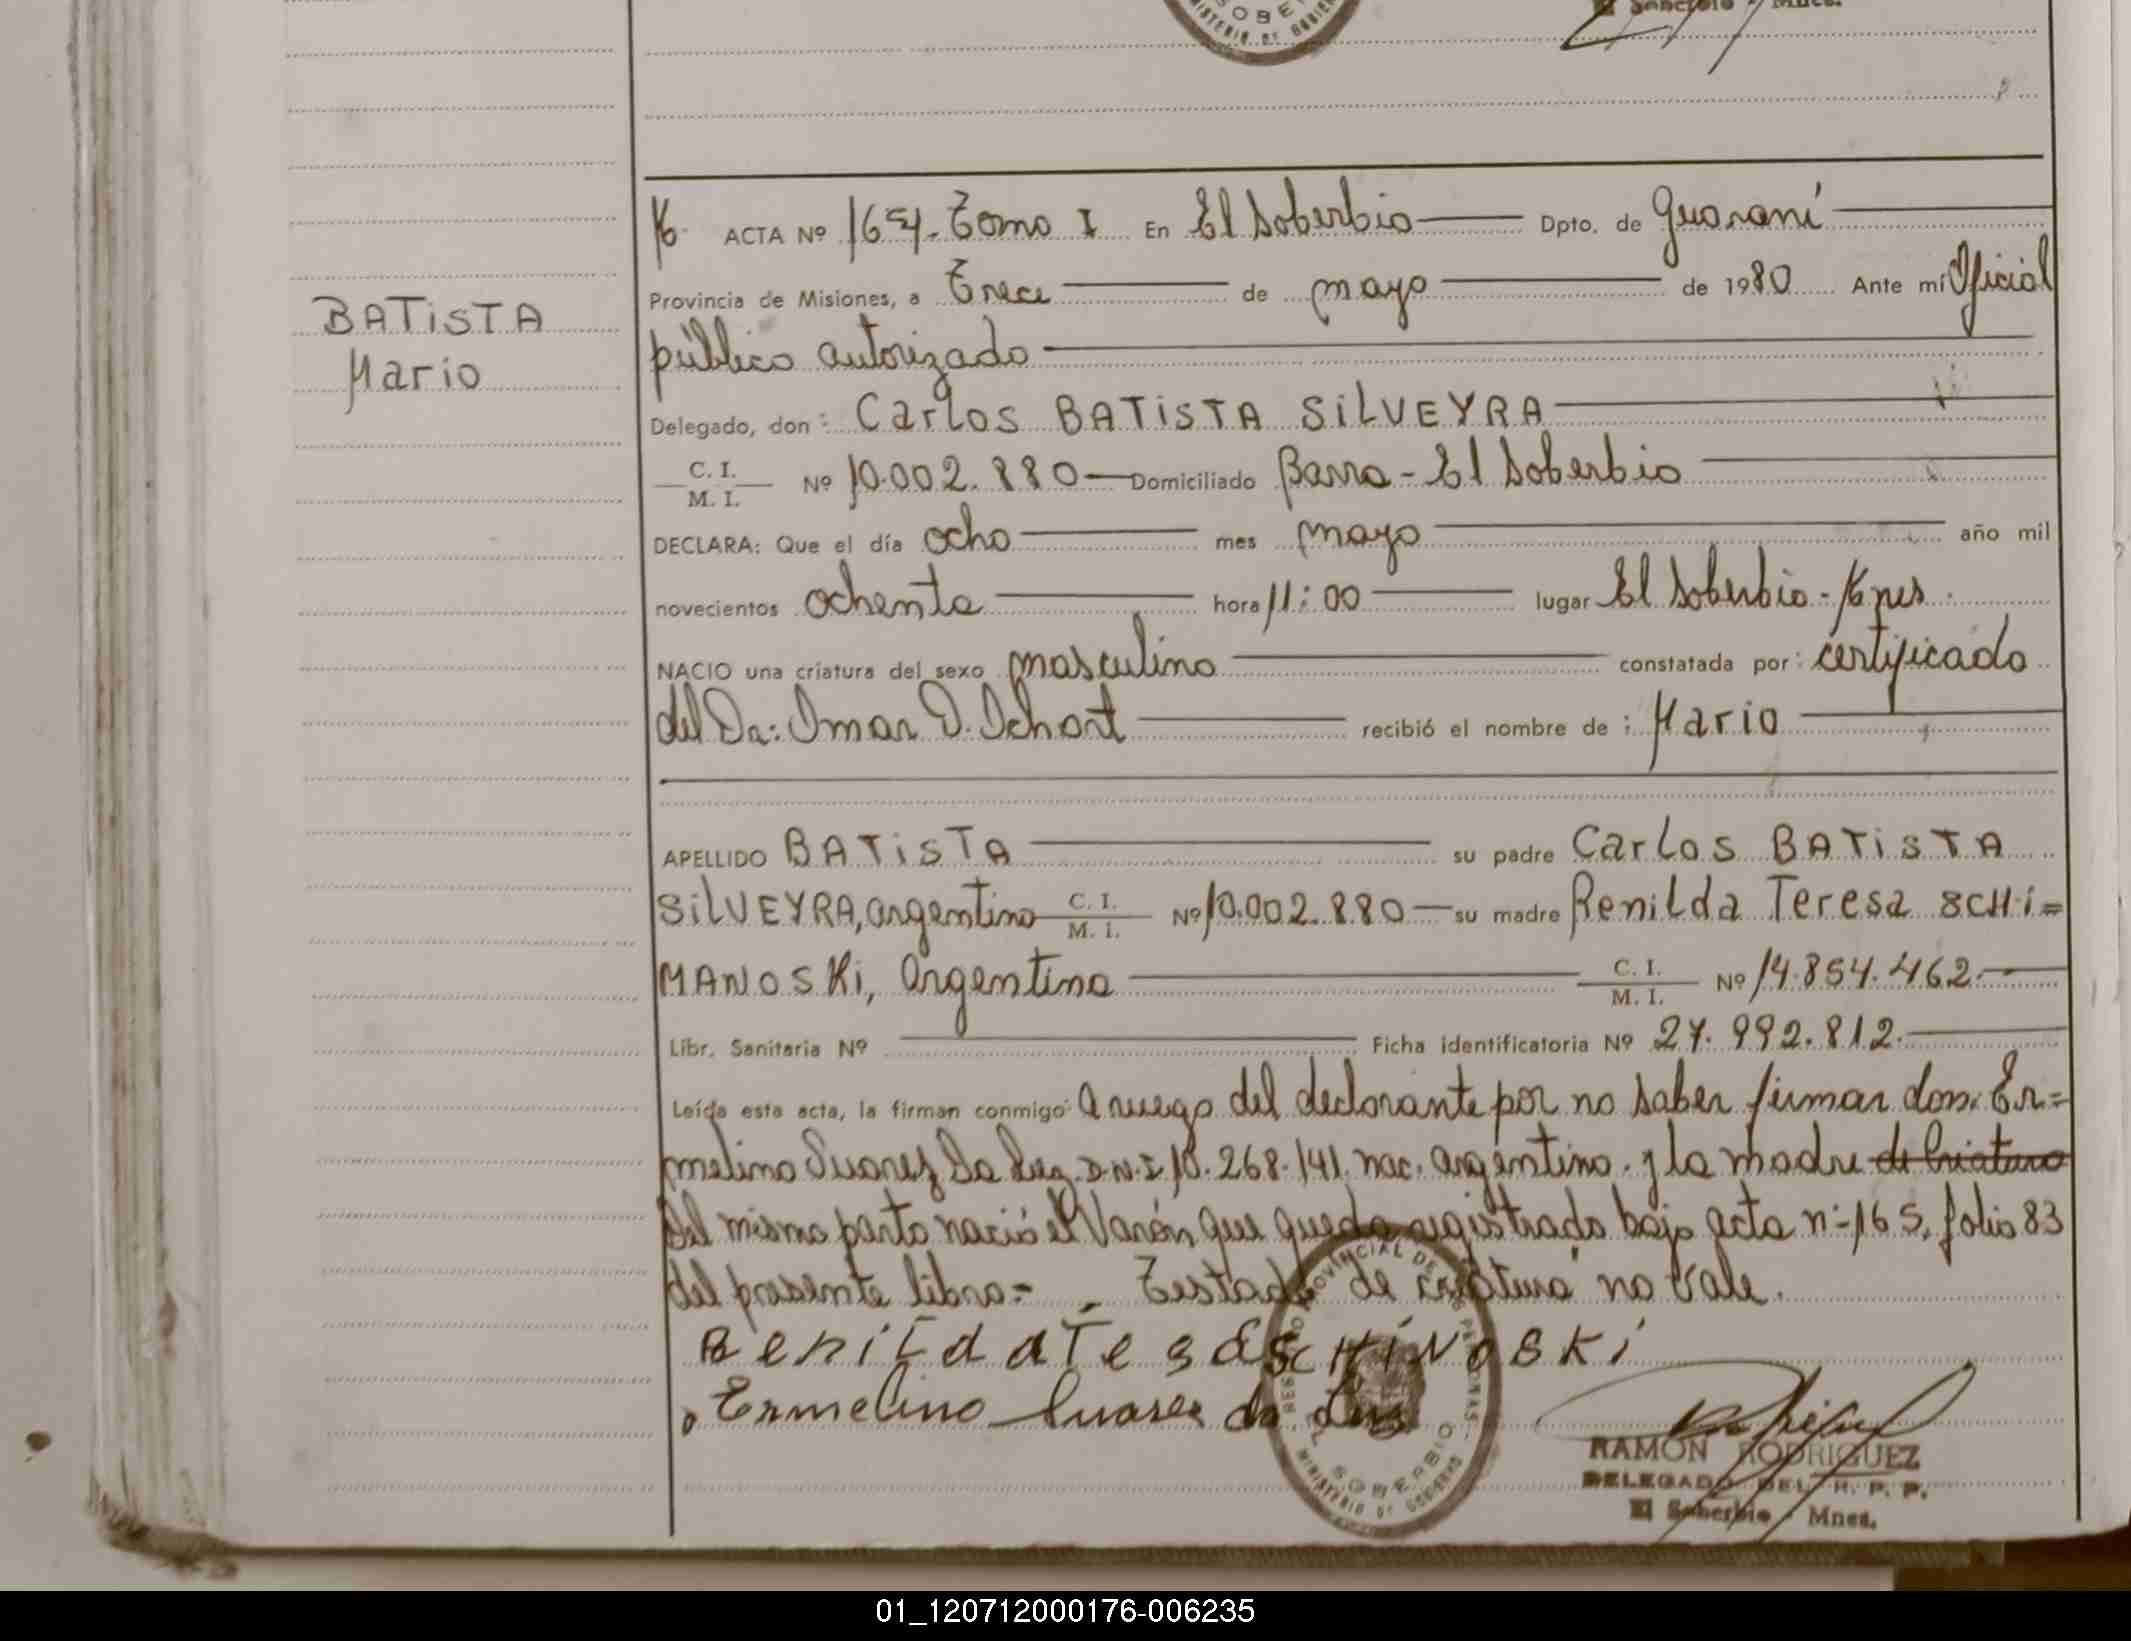 SOBE
MINISTERIO DE GOBIERNO
El Soberbio Mnes.
ACTA Nº 164. Tomo I En El Soberbio Dpto. de Guaraní
Provincia de Misiones, a Trece de mayo de 1980 Ante mí Oficial
público autorizado
BATiSTA
Mario
Delegado, don: Carlos BATiSTA SiLVEYRA
C. I.
M. I. Nº 10.002.880 Domiciliado Barra - El Soberbio
DECLARA: Que el día ocho mes mayo año mil
novecientos ochenta hora 11:00 lugar El Soberbio -
NACIO una criatura del sexo masculino constatada por: certificado
del Dr: Omar D. recibió el nombre de: Mario
APELLIDO BATiSTA su padre Carlos BATiSTA
SiLVEYRA, argentino C. I.
M. I. Nº 10.002.880 su madre Renilda Teresa SCHi=
MANOSKi, argentina C. I.
M. I. Nº 14.854.462.
Libr. Sanitaria Nº Ficha identificatoria Nº 27.992.812.
Leída esta acta, la firman conmigo a ruego del declarante por no saber firmar don: Er=
melino Suarez Da Luz. D.N.I 10.268.141. nac. argentino. y la madre de criatura
Del mismo parto nació el Varón que queda registrado bajo acta nº 165, folio 83
del presente libro= . Testado de criatura no vale.
Renilda Teresa SCHiNOSKi
Ermelino Suares da Luz
REGISTRO PROVINCIAL DE LAS PERSONAS
EL SOBERBIO
MINISTERIO DE GOBIERNO
RAMON RODRIGUEZ
DELEGADO DEL R. P. P.
El Soberbio Mnes.
01_120712000176-006235